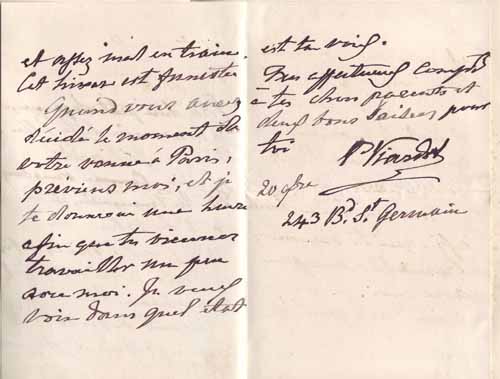 et assez mal en train.
Cet hiver est funeste.
Quand vous aurez
décidé le moment de
votre venue à Paris,
préviens moi, et je
te donnerai une heure
afin que tu viennes
travailler un peu
avec moi. Je veux
voir dans quel état
est ta voix.
Très affectueux compts
à tes chers parents et
deux bons baisers pour
toi
P. Viardot
20 Xbre
243 Bd. St. Germain